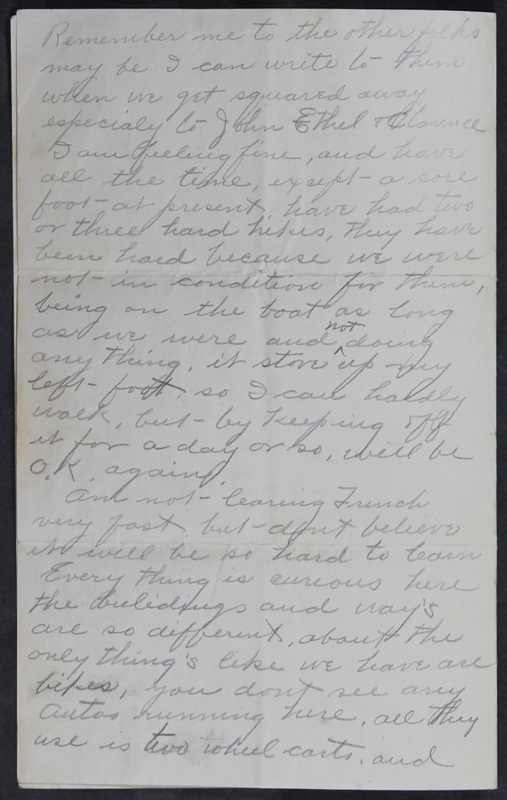 Remember me to the other folks
may be I can write to them
when we get squared away
especialy to John Ethel & Clarence
I am feeling fine, and have
all the time, except a sore
foot at present, have had two
or three hard hikes, they have
been hard because we were
not in condition for them,
being on the boat as long
as we were and not doing
any thing, it stove up my
left foot, so I can hardly
walk, but by keeping off
it for a day or so, will be
O.K. again.
Am not learing French
very fast, but dont believe
it will be so hard to learn
Every thing is curious here
the buildings and way's
are so different, about the
only thing's like we have are
bikes, you dont see any
Autos running here, all they
use is two wheel carts, and